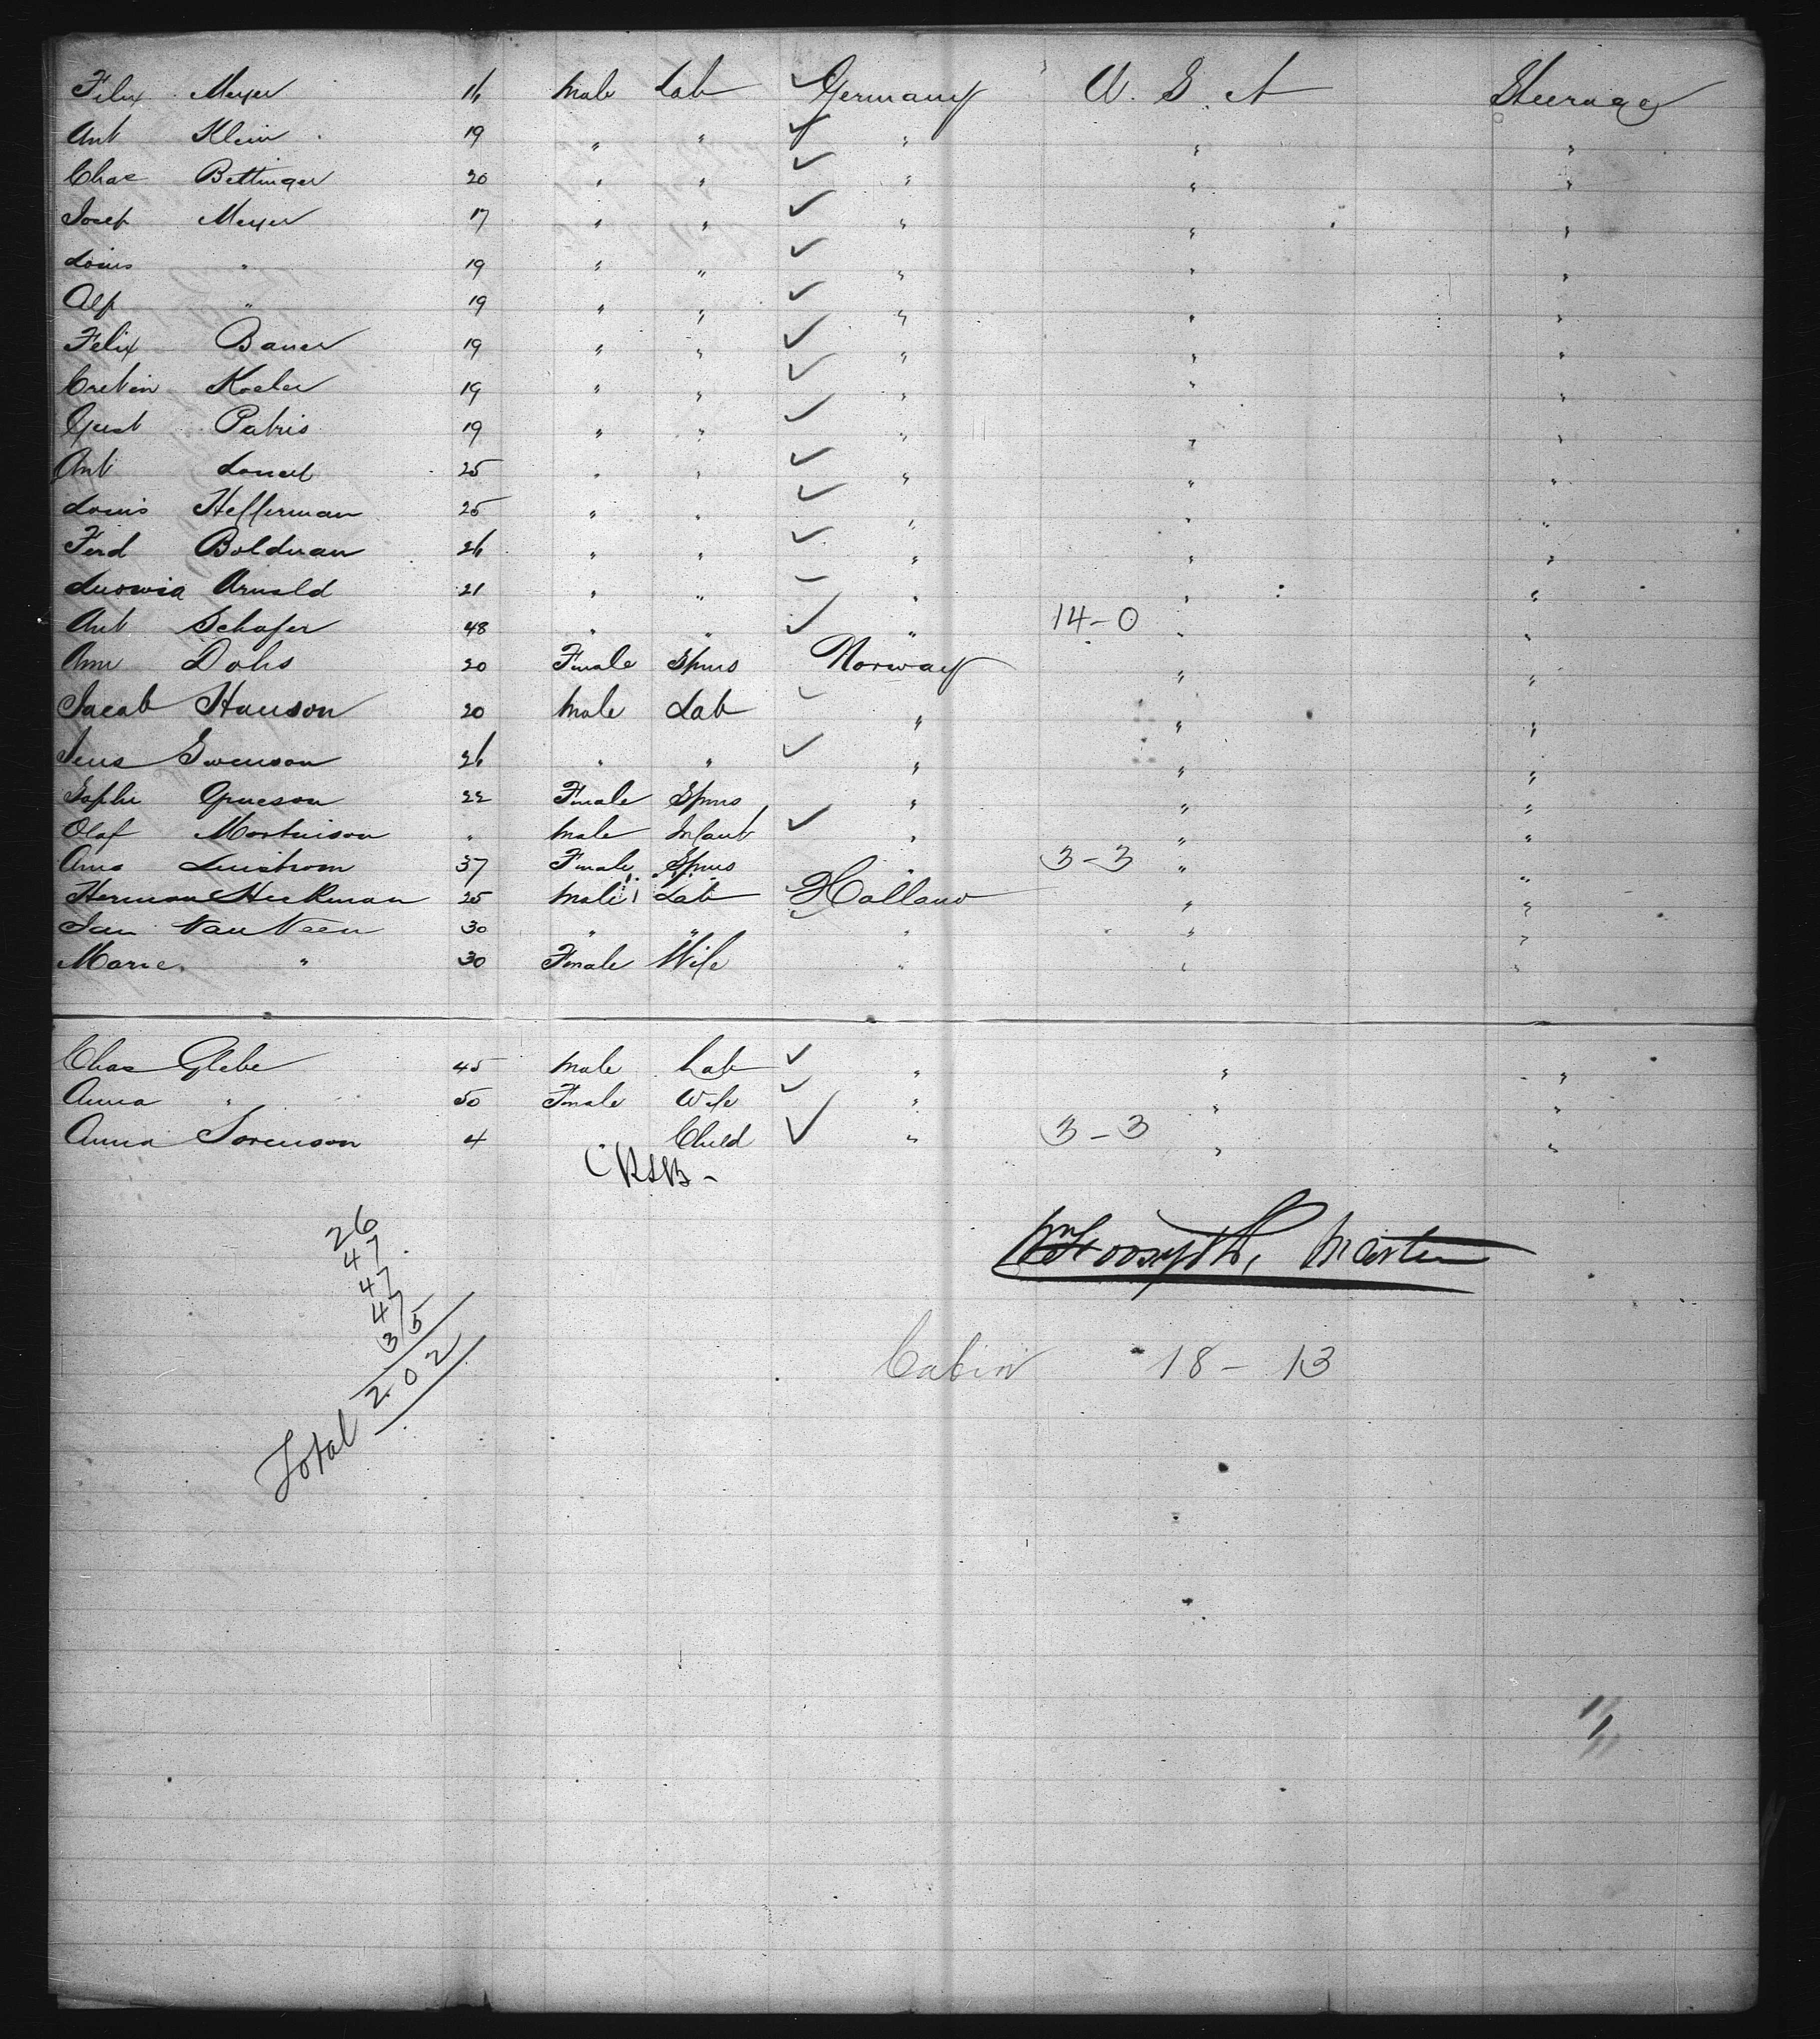 Felix Meyer 16 Male Lab Germany U. S. A Steerage
Ant Klein 19 " " " " "
Chas Bettinger 20 " " " " "
Josef Meyer 17 " " " " "
Louis " 19 " " " " "
Alf " 19 " " " " "
Felix Bauer 19 " " " " "
Cretien Koeler 19 " " " " "
Gust Patris 19 " " " " "
Ant 25 " " " " "
Louis Hefferman 25 " " " " "
Ferd Bolduan 26 " " " " "
Ludwig Arnold 21 " " " " "
Ant Schafer 48 " " " 14-0 " "
Ann Dohs 20 Female Spins Norway " "
Jacob Hanson 20 Male Lab " " "
Jens Swenson 26 " " " " "
Sophi 22 Female Spins " " "
Olaf Mortinson " Male Infant " " "
Ana Lindstrom 37 Female Spins " 3-3 " "
Herman Heekman 25 Male Lab Holland " "
Jan Van Veen 30 " " " " "
Marie " 30 Female Wife " " "
Chas Glebe 45 Male Lab " " "
Anna " 50 Female Wife " " "
Anna Sorenson 4 Child " 3-3 " "
Wm Forsyth, Master
26
47
47
47
35
Total 202
Cabin 18-13